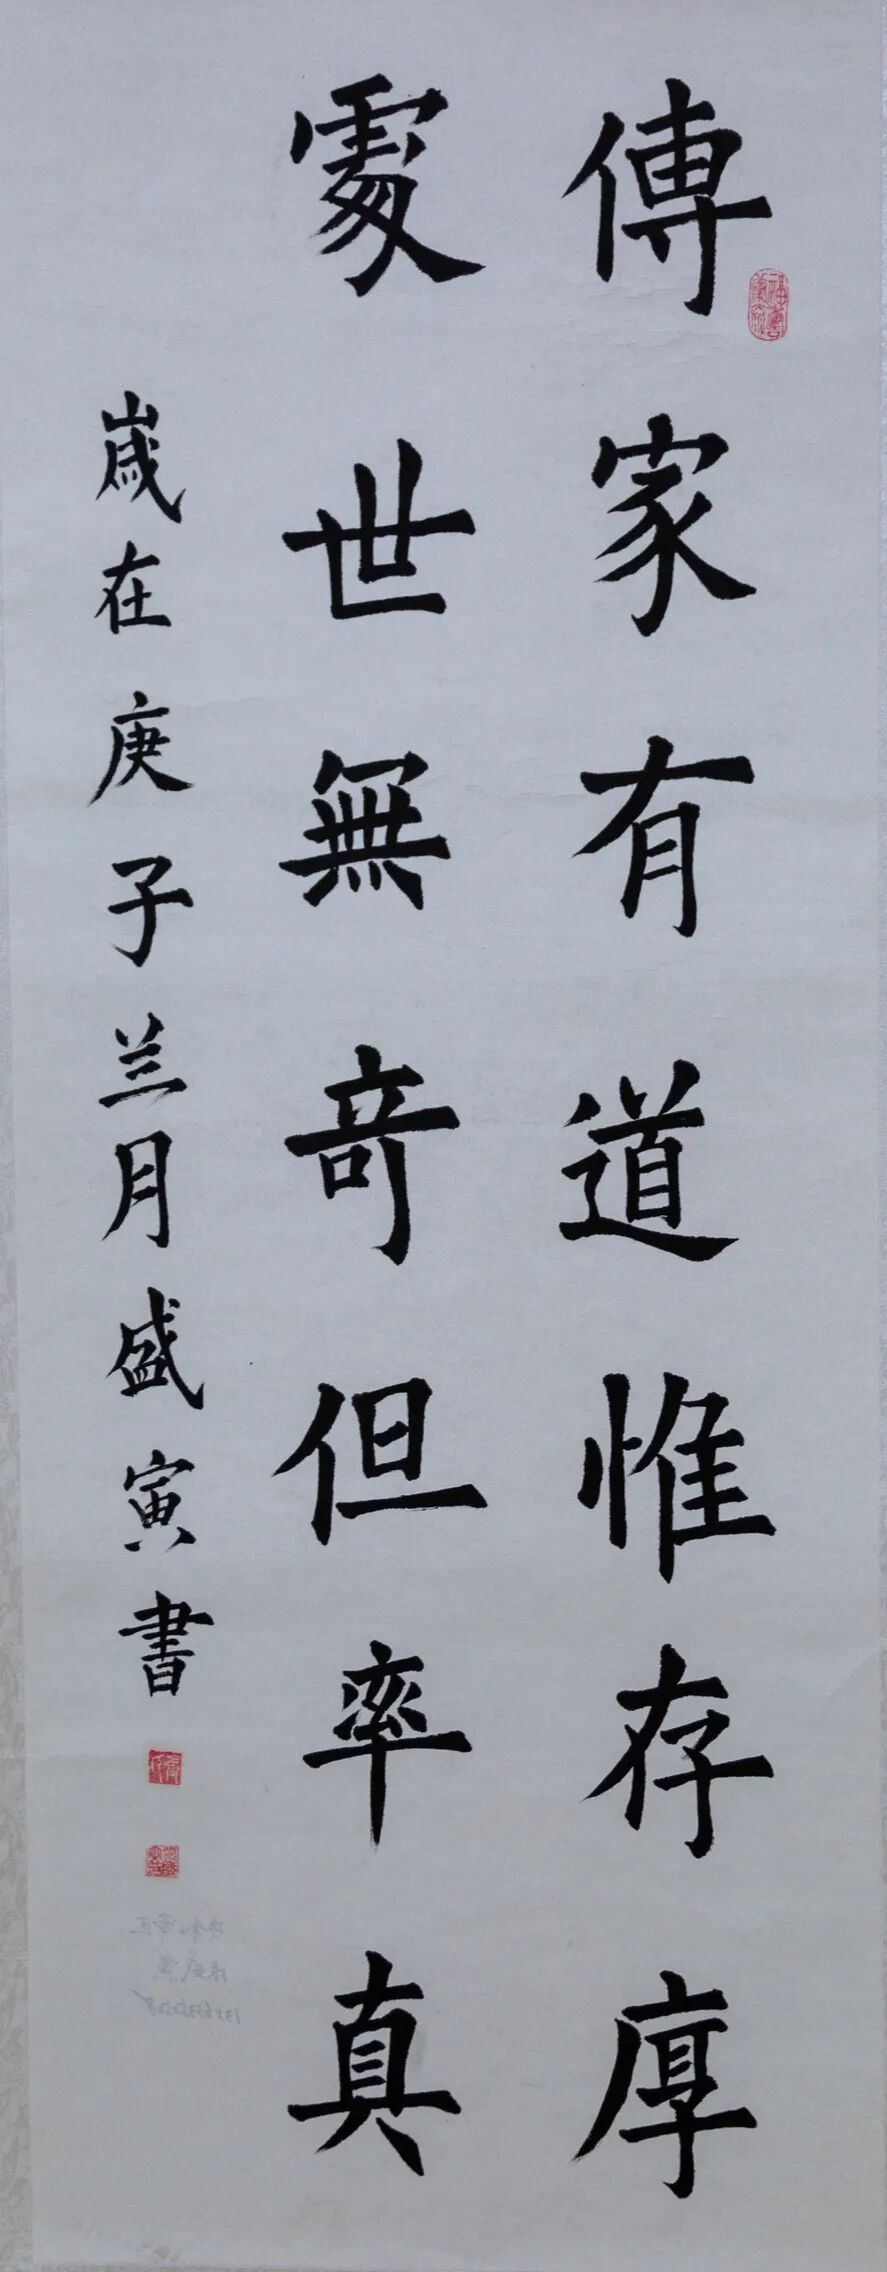 傳家有道惟存厚
處世無竒但率真
歲在庚子兰月盛寅書